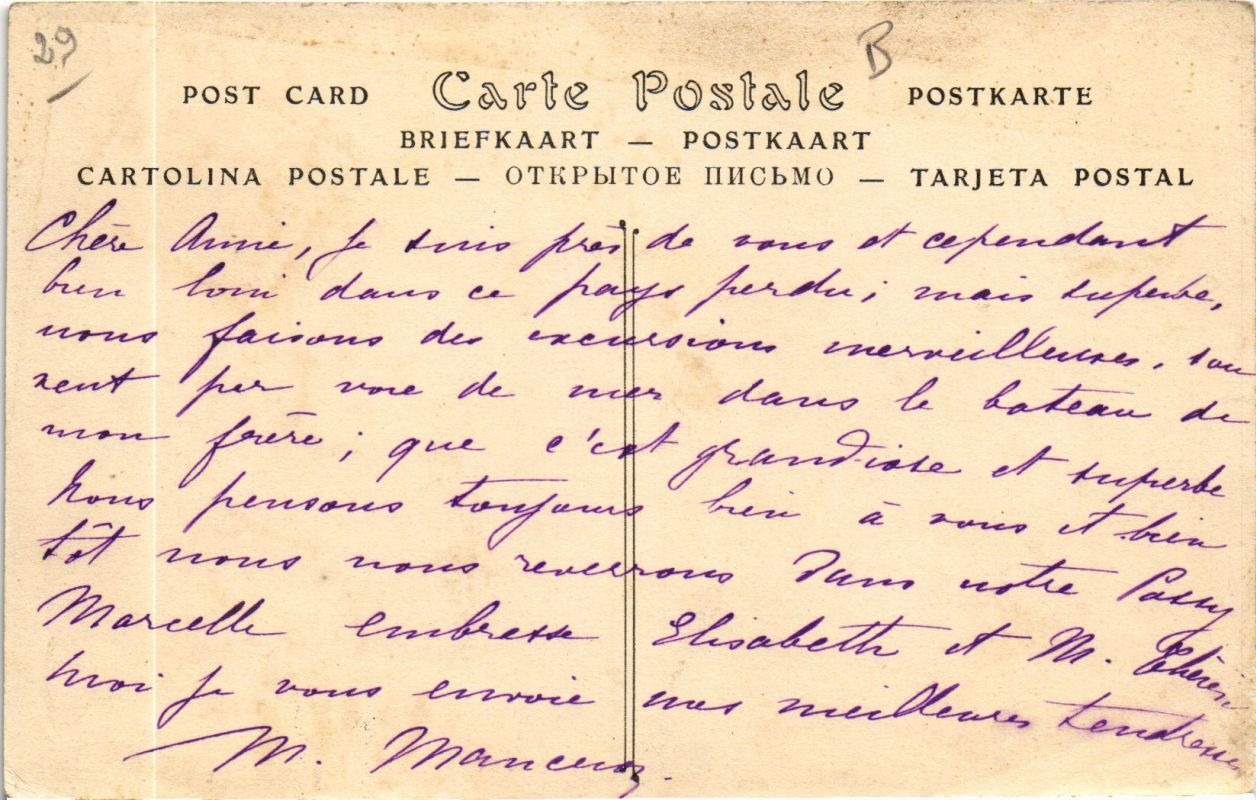 29
B
POST CARD Carte Postale POSTKARTE
BRIEFKAART — POSTKAART
CARTOLINA POSTALE — ОТКРЫТОЕ ПИСЬМО — TARJETA POSTAL
Chère Amie, je suis près de vous et cependant
bien loin dans ce pays perdu ; mais superbe,
nous faisons des excursions merveilleuses, sou
vent par voie de mer dans le bateau de
mon frère ; que c'est grandiose et superbe
Nous pensons toujours bien à vous et bien
tôt nous nous reverrons dans notre Passy
Marcelle embrasse Elisabeth et M.
moi je vous envoie mes meilleures tendresses
M.